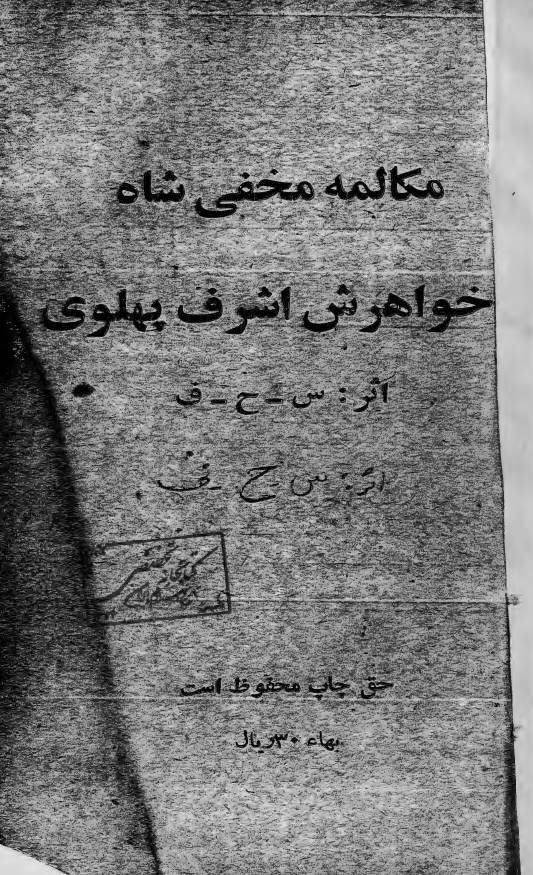 مکالمه مخفی شاه
خواهرش اشرف پهلوی
اثر : س - ح - ف
اثر : س - ح - ف
حق چاپ محفوظ است
بهاء ۳۰ ریال